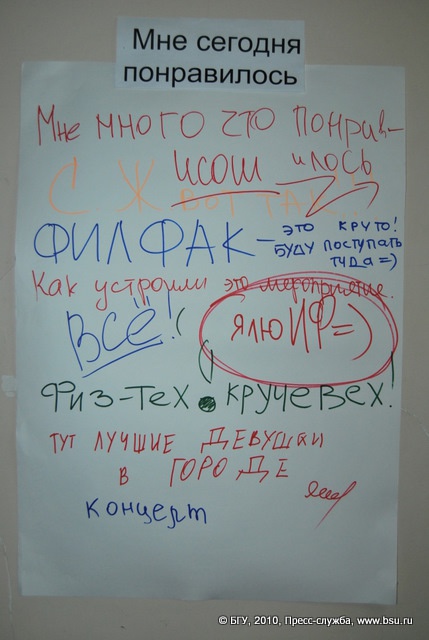 Мне сегодня
понравилось
Мне много что понрав-
илось
исош
С Ж ВОТ ТАК!
ФИЛФАК – ЭТО КРУТО!
БУДУ ПОСТУПАТЬ
ТУДА=)
Как устроили это мероприятие.
ВСЁ!
Я ЛЮ ИФ=)
Физ-тех • кручевех!
ТУТ ЛУЧШИЕ ДЕВУШКИ
В ГОРОДЕ
концерт
© БГУ, 2010, Пресс-служба, www.bsu.ru